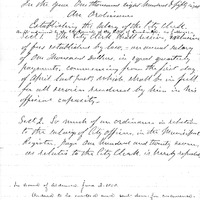 In the year One thousand eight hundred & fifty
An Ordinance
Establishing the salary of the City Clerk.
Sect. 1. The City Clerk shall receive, exclusive
of fees established by law, an annual salary
of One thousand dollars, in equal quarterly
payments, commencing from the first day
of April last past, which shall be in full
for all services rendered by him in his
official capacity.
Sect. 2. So much of an ordinance in relation
to the salary of City officers, in the Municipal
Register, page One hundred and twenty seven,
as relates to the City Clerk, is hereby repealed
In Board of Aldermen June 2.
Ordered to be and sent down for concurrence.